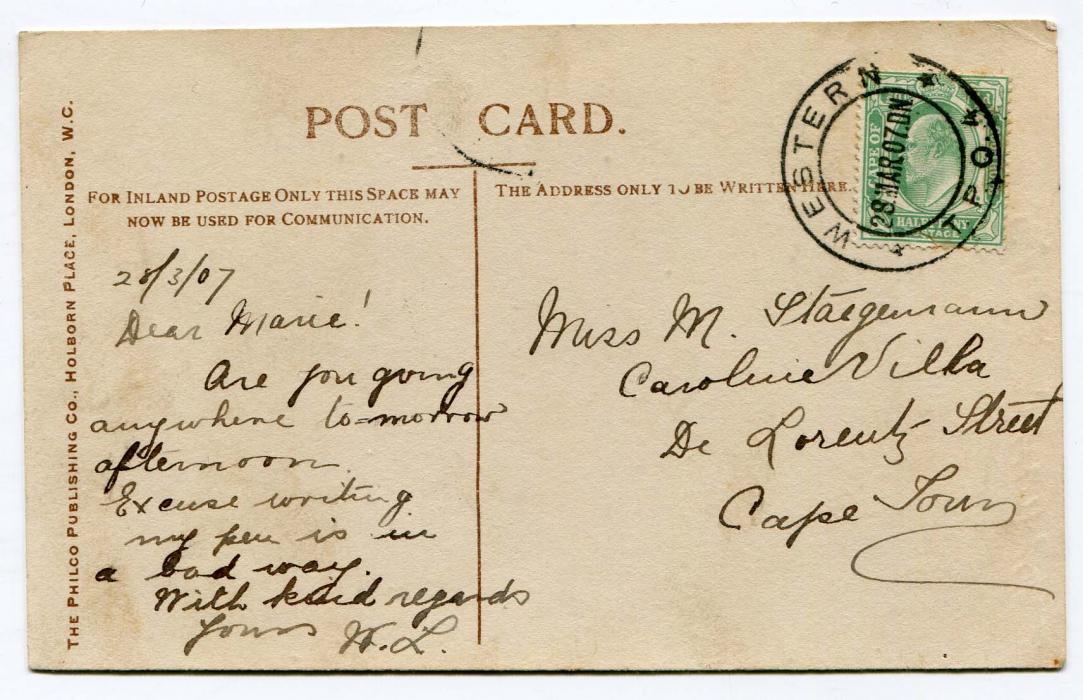 POST CARD.
THE PHILCO PUBLISHING CO., HOLBORN PLACE, LONDON, W.C.
FOR INLAND POSTAGE ONLY THIS SPACE MAY
NOW BE USED FOR COMMUNICATION.
THE ADDRESS ONLY TO BE WRITTEN HERE.
WESTERN T.P.O. 4
28 MAR 07 DN
HALFPENNY
POSTAGE
28/3/07
Dear Marie!
Are you going
anywhere to-morrow
afternoon.
Excuse writing
my pen is in
a bad way.
With kind regards
Yours W. L.
Miss M. Staegemann
Caroline Villa
De Lorentz Street
Cape Town